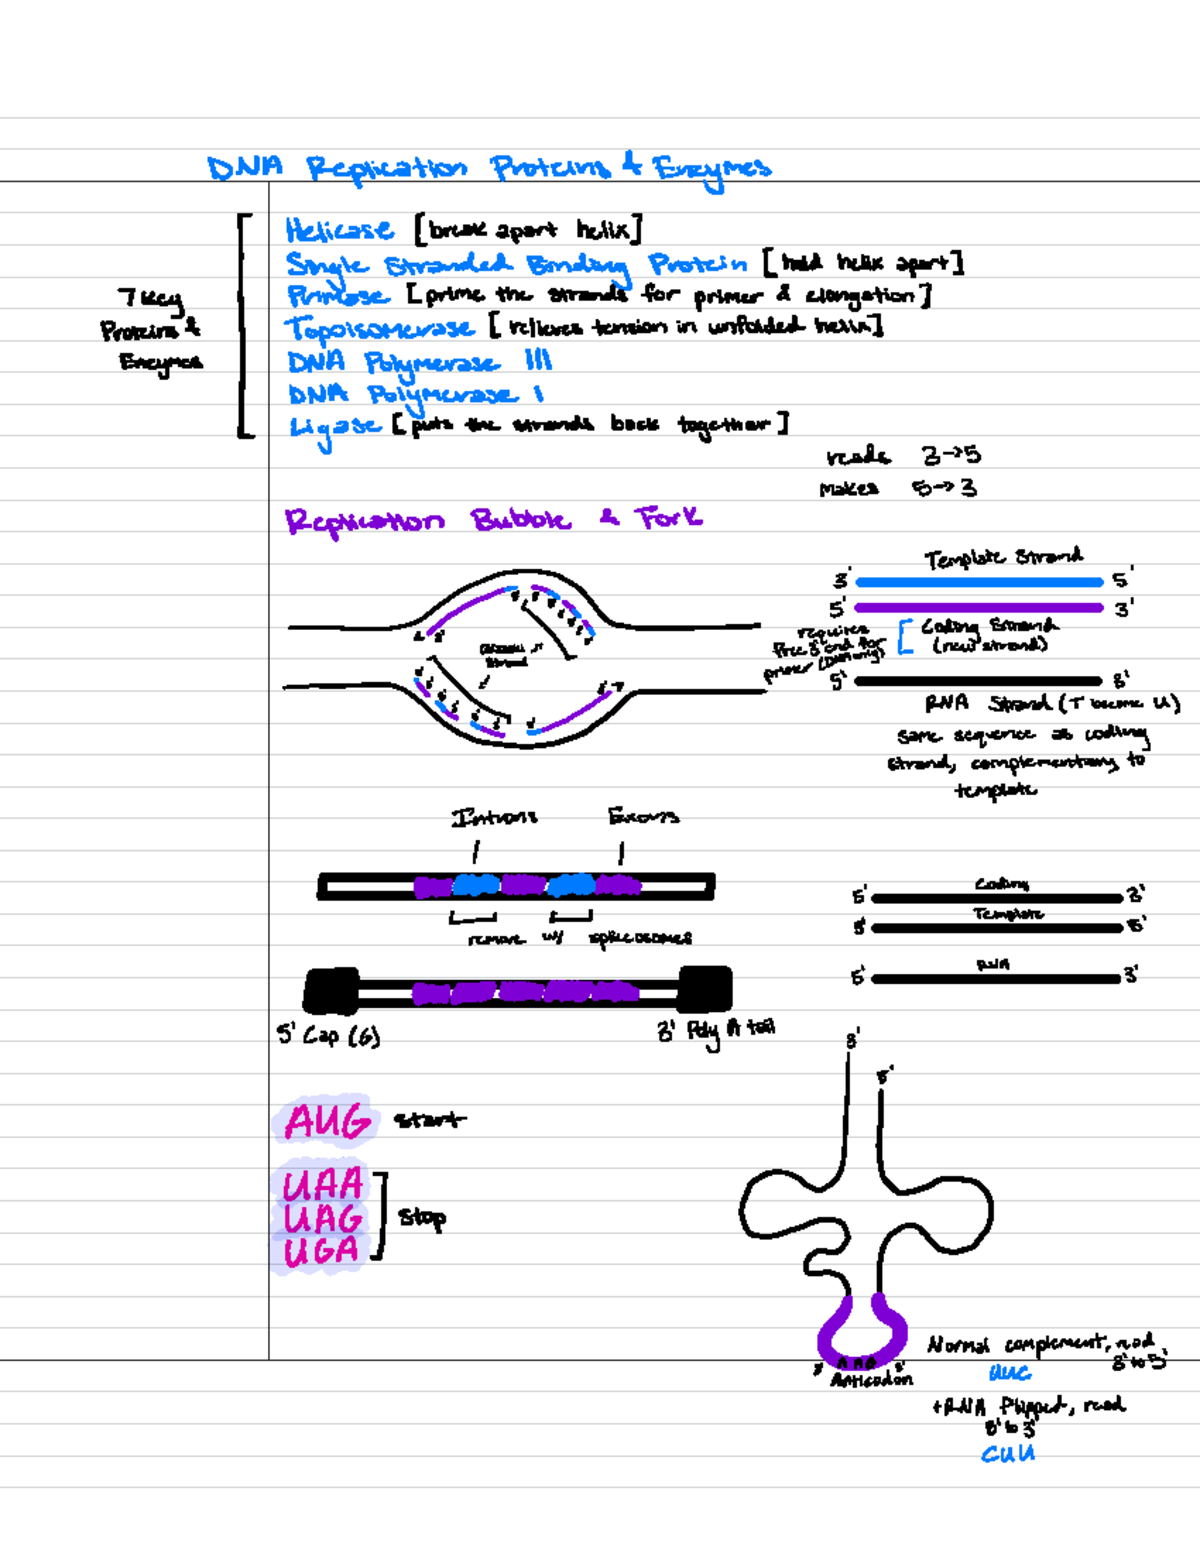 DNA Replication Proteins & Enzymes
7 Key
Proteins &
Enzymes
Helicase [break apart helix]
Single Stranded Binding Protein [hold helix apart]
Primase [prime the strands for primer & elongation]
Topoisomerase [relieves tension in unfolded helix]
DNA Polymerase III
DNA Polymerase I
Ligase [puts the strands back together]
reads 3→5
makes 5→3
Replication Bubble & Fork
Strand
Template Strand
3' 5'
5' 3'
requires
free 3' end for
primer
Coding Strand
(new strand)
5' 3'
RNA Strand (T become U)
same sequence as coding
strand, complementary to
template
Introns Exons
remove w/ spliceosomes
5' Cap (G) 3' Poly A tail
Coding
5' 3'
Template
3' 5'
RNA
5' 3'
AUG start
UAA
UAG
UGA
Stop
3'
5'
Anticodon
Normal complement, read
3' to 5'
UUC
tRNA flipped, read
5' to 3'
CUU